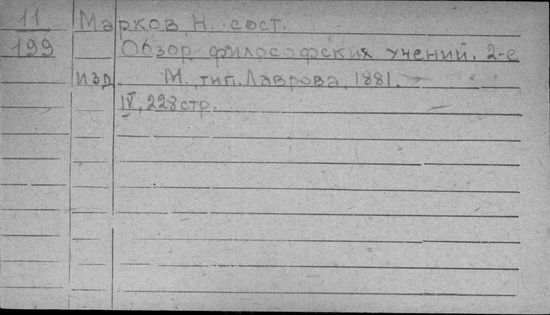 11 Марков, Н. сост.
199 Обзор философских учений. 2-е
изд. М. тип. Лаврова, 1881.
IV, 228 стр.